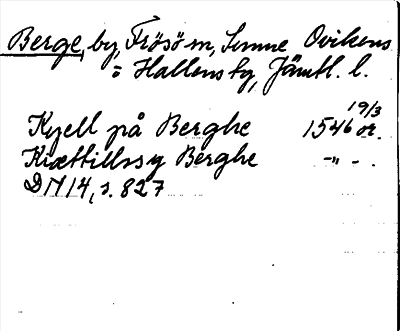 Berge, by, Frösö sn, Sunne Ovikens
= Hallens tg, Jämtl. l.
19/3
Kyell på Berghe 1546 or.
Kiættillssy Berghe -"-.
DN 14, s. 827